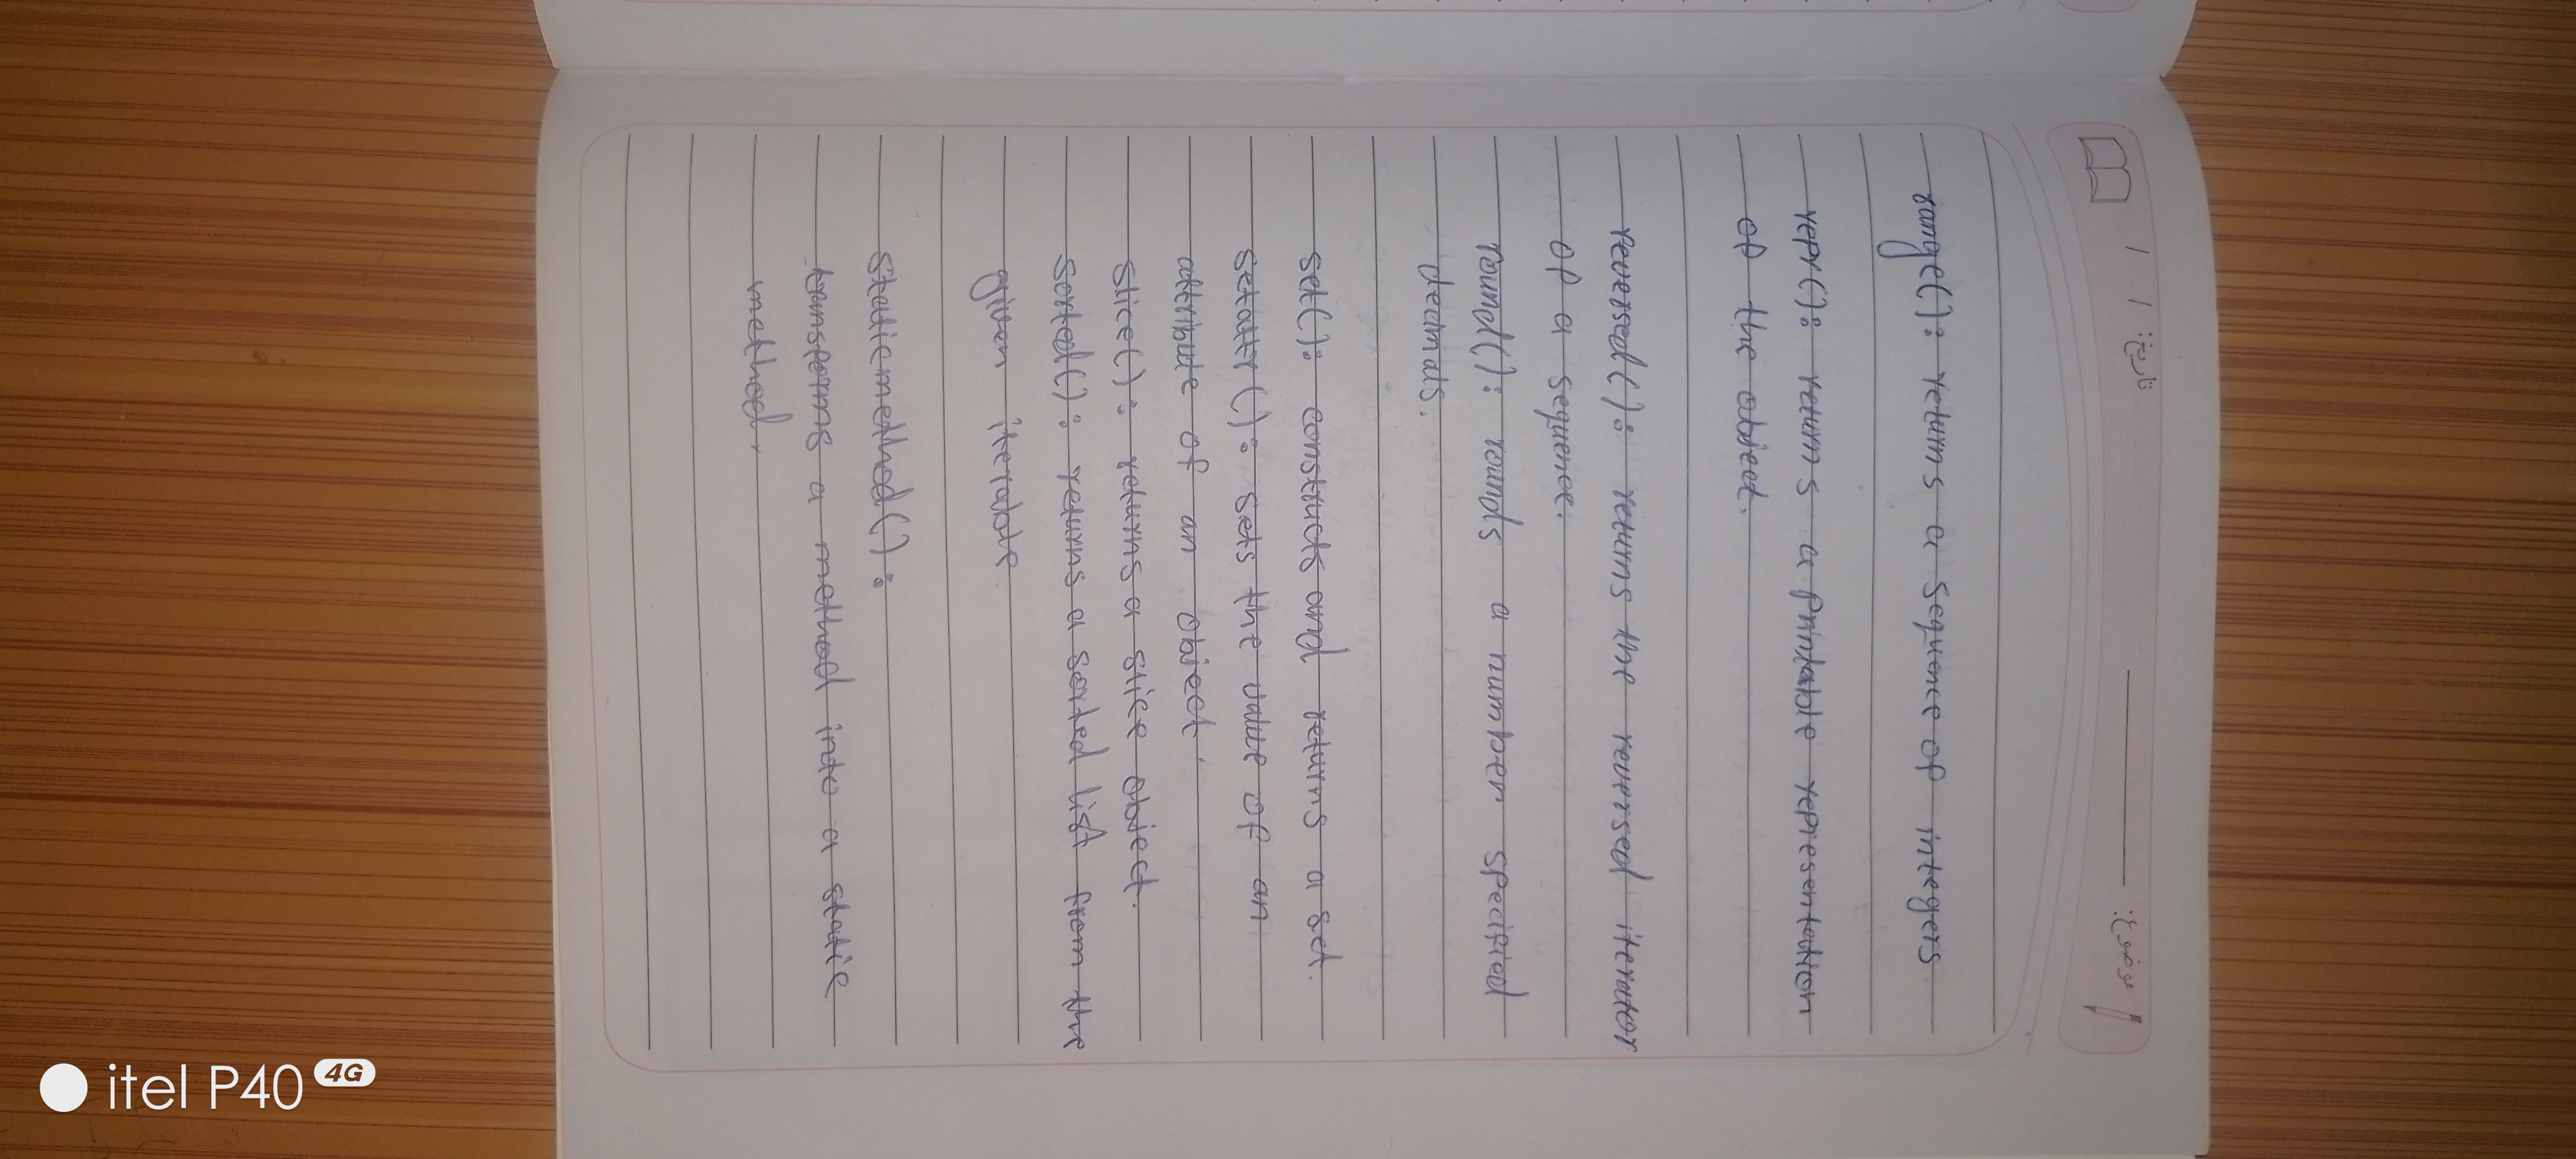 تاریخ: / /
موضوع:
range(): returns a sequence of integers
repr(): returns a printable representation
of the object.
reversed(): returns the reversed iterator
of a sequence.
round(): rounds a number specified
decimals.
set(): constructs and returns a set.
setattr(): sets the value of an
attribute of an object.
slice(): returns a slice object.
sorted(): returns a sorted list from the
given iterable
staticmethod():
transforms a method into a static
method.
itel P40 4G